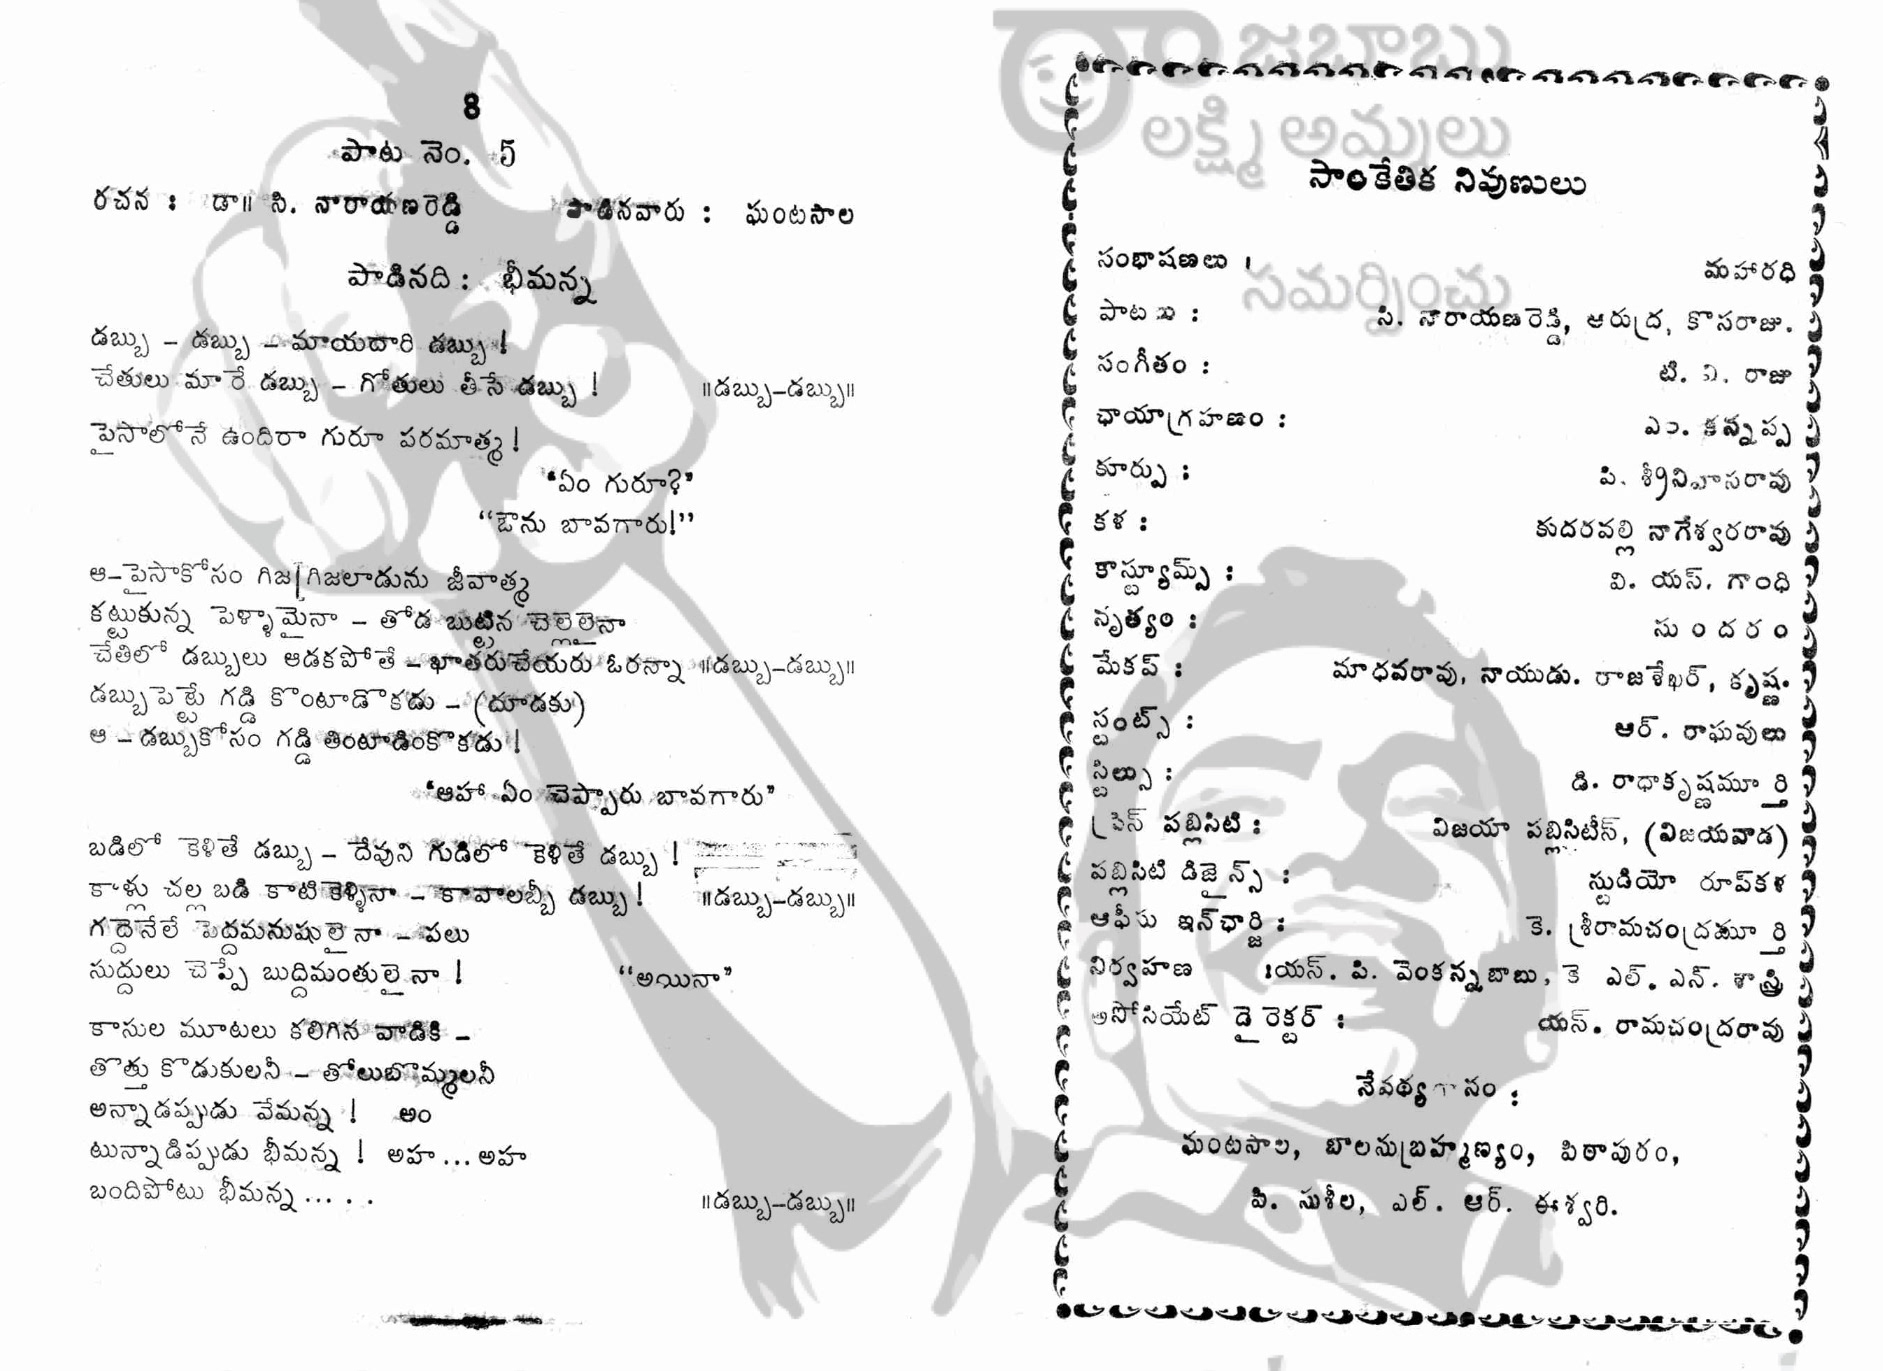 8
పాట నెం. 5
రచన : డా॥ సి. నారాయణరెడ్డి పాడినవారు : ఘంటసాల
పాడినది : భీమన్న
డబ్బు – డబ్బు – మాయదారి డబ్బు !
చేతులు మారే డబ్బు – గోతులు తీసే డబ్బు ! ॥డబ్బు–డబ్బు॥
పైసాలోనే ఉందిరా గురూ పరమాత్మ !
“ఏం గురూ?”
“ఔను బావగారు!”
ఆ–పైసాకోసం గిజగిజలాడును జీవాత్మ
కట్టుకున్న పెళ్ళామైనా – తోడ బుట్టిన చెల్లెలైనా
చేతిలో డబ్బులు ఆడకపోతే – ఖాతరుచేయరు ఓరన్నా ॥డబ్బు–డబ్బు॥
డబ్బుపెట్టి గడ్డి కొంటాడొకడు – (దూడకు)
ఆ – డబ్బుకోసం గడ్డి తింటాడింకొకడు !
‘ఆహా ఏం చెప్పారు బావగారు’
బడిలో కెళితే డబ్బు – దేవుని గుడిలో కెళితే డబ్బు !
కాళ్లు చల్ల బడి కాటి కెళ్ళినా – కావాలబ్బీ డబ్బు ! ॥డబ్బు–డబ్బు॥
గద్దెనేలే పెద్దమనుషులైనా – పలు
సుద్దులు చెప్పే బుద్ధిమంతులైనా ! “అయినా”
కాసుల మూటలు కలిగిన వాడికి –
తొత్తు కొడుకులనీ – తోలుబొమ్మలనీ
అన్నాడప్పుడు వేమన్న ! అం
టున్నాడిప్పుడు భీమన్న ! అహ...అహ
బందిపోటు భీమన్న .....
॥డబ్బు–డబ్బు॥
రాజబాబు
లక్ష్మి అమ్మలు
సమర్పించు
సాంకేతిక నిపుణులు
సంభాషణలు : మహారథి
పాటలు : సి. నారాయణరెడ్డి, ఆరుద్ర, కొసరాజు.
సంగీతం : టి. వి. రాజు
ఛాయాగ్రహణం : ఎం. కన్నప్ప
కూర్పు : పి. శ్రీనివాసరావు
కళ : కుదరవల్లి నాగేశ్వరరావు
కాస్ట్యూమ్స్ : వి. యస్. గాంధి
నృత్యం : సుందరం
మేకప్ : మాధవరావు, నాయుడు. రాజశేఖర్, కృష్ణ.
స్టంట్స్ : ఆర్. రాఘవులు
స్టిల్సు : డి. రాధాకృష్ణమూర్తి
ప్రెస్ పబ్లిసిటి : విజయా పబ్లిసిటీస్, (విజయవాడ)
పబ్లిసిటి డిజైన్స్ : స్టుడియో రూప్‌కళ
ఆఫీసు ఇన్‌ఛార్జి : కె. శ్రీరామచంద్రమూర్తి
నిర్వహణ : యస్. పి. వెంకన్నబాబు, కె ఎల్. ఎన్. శాస్త్రి
అసోసియేట్ డైరెక్టర్ : యస్. రామచంద్రరావు
నేపథ్యగానం :
ఘంటసాల, బాలసుబ్రహ్మణ్యం, పిఠాపురం,
పి. సుశీల, ఎల్. ఆర్. ఈశ్వరి.